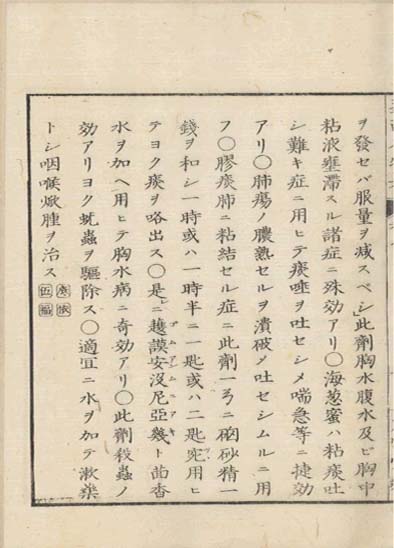 ヲ發セバ服量ヲ減スベシ」此劑胸水腹水及ビ胸中
粘液壅滯スル諸症ニ殊効アリ〇海葱蜜ハ粘痰吐
シ難キ症ニ用ヒテ痰唾ヲ吐セシメ喘急等ニ捷効
アリ〇肺瘍ノ膿熟セルヲ潰破メ吐セシムルニ用
フ〇膠痰肺ニ粘結セル症ニ此劑一ニ硇砂精一
錢ヲ和シ一時或ハ一時半ニ一匙或ハ二匙宛用ヒ
テヨク痰ヲ咯出ス〇是ニ越謨安没尼亞幾ト茴香
水ヲ加ヘ用ヒテ胸水病ニ奇効アリ〇此劑殺蟲ノ
効アリヨク蚘蟲ヲ驅除ス〇適宜ニ水ヲ加テ漱藥
トシ咽喉焮腫ヲ治ス